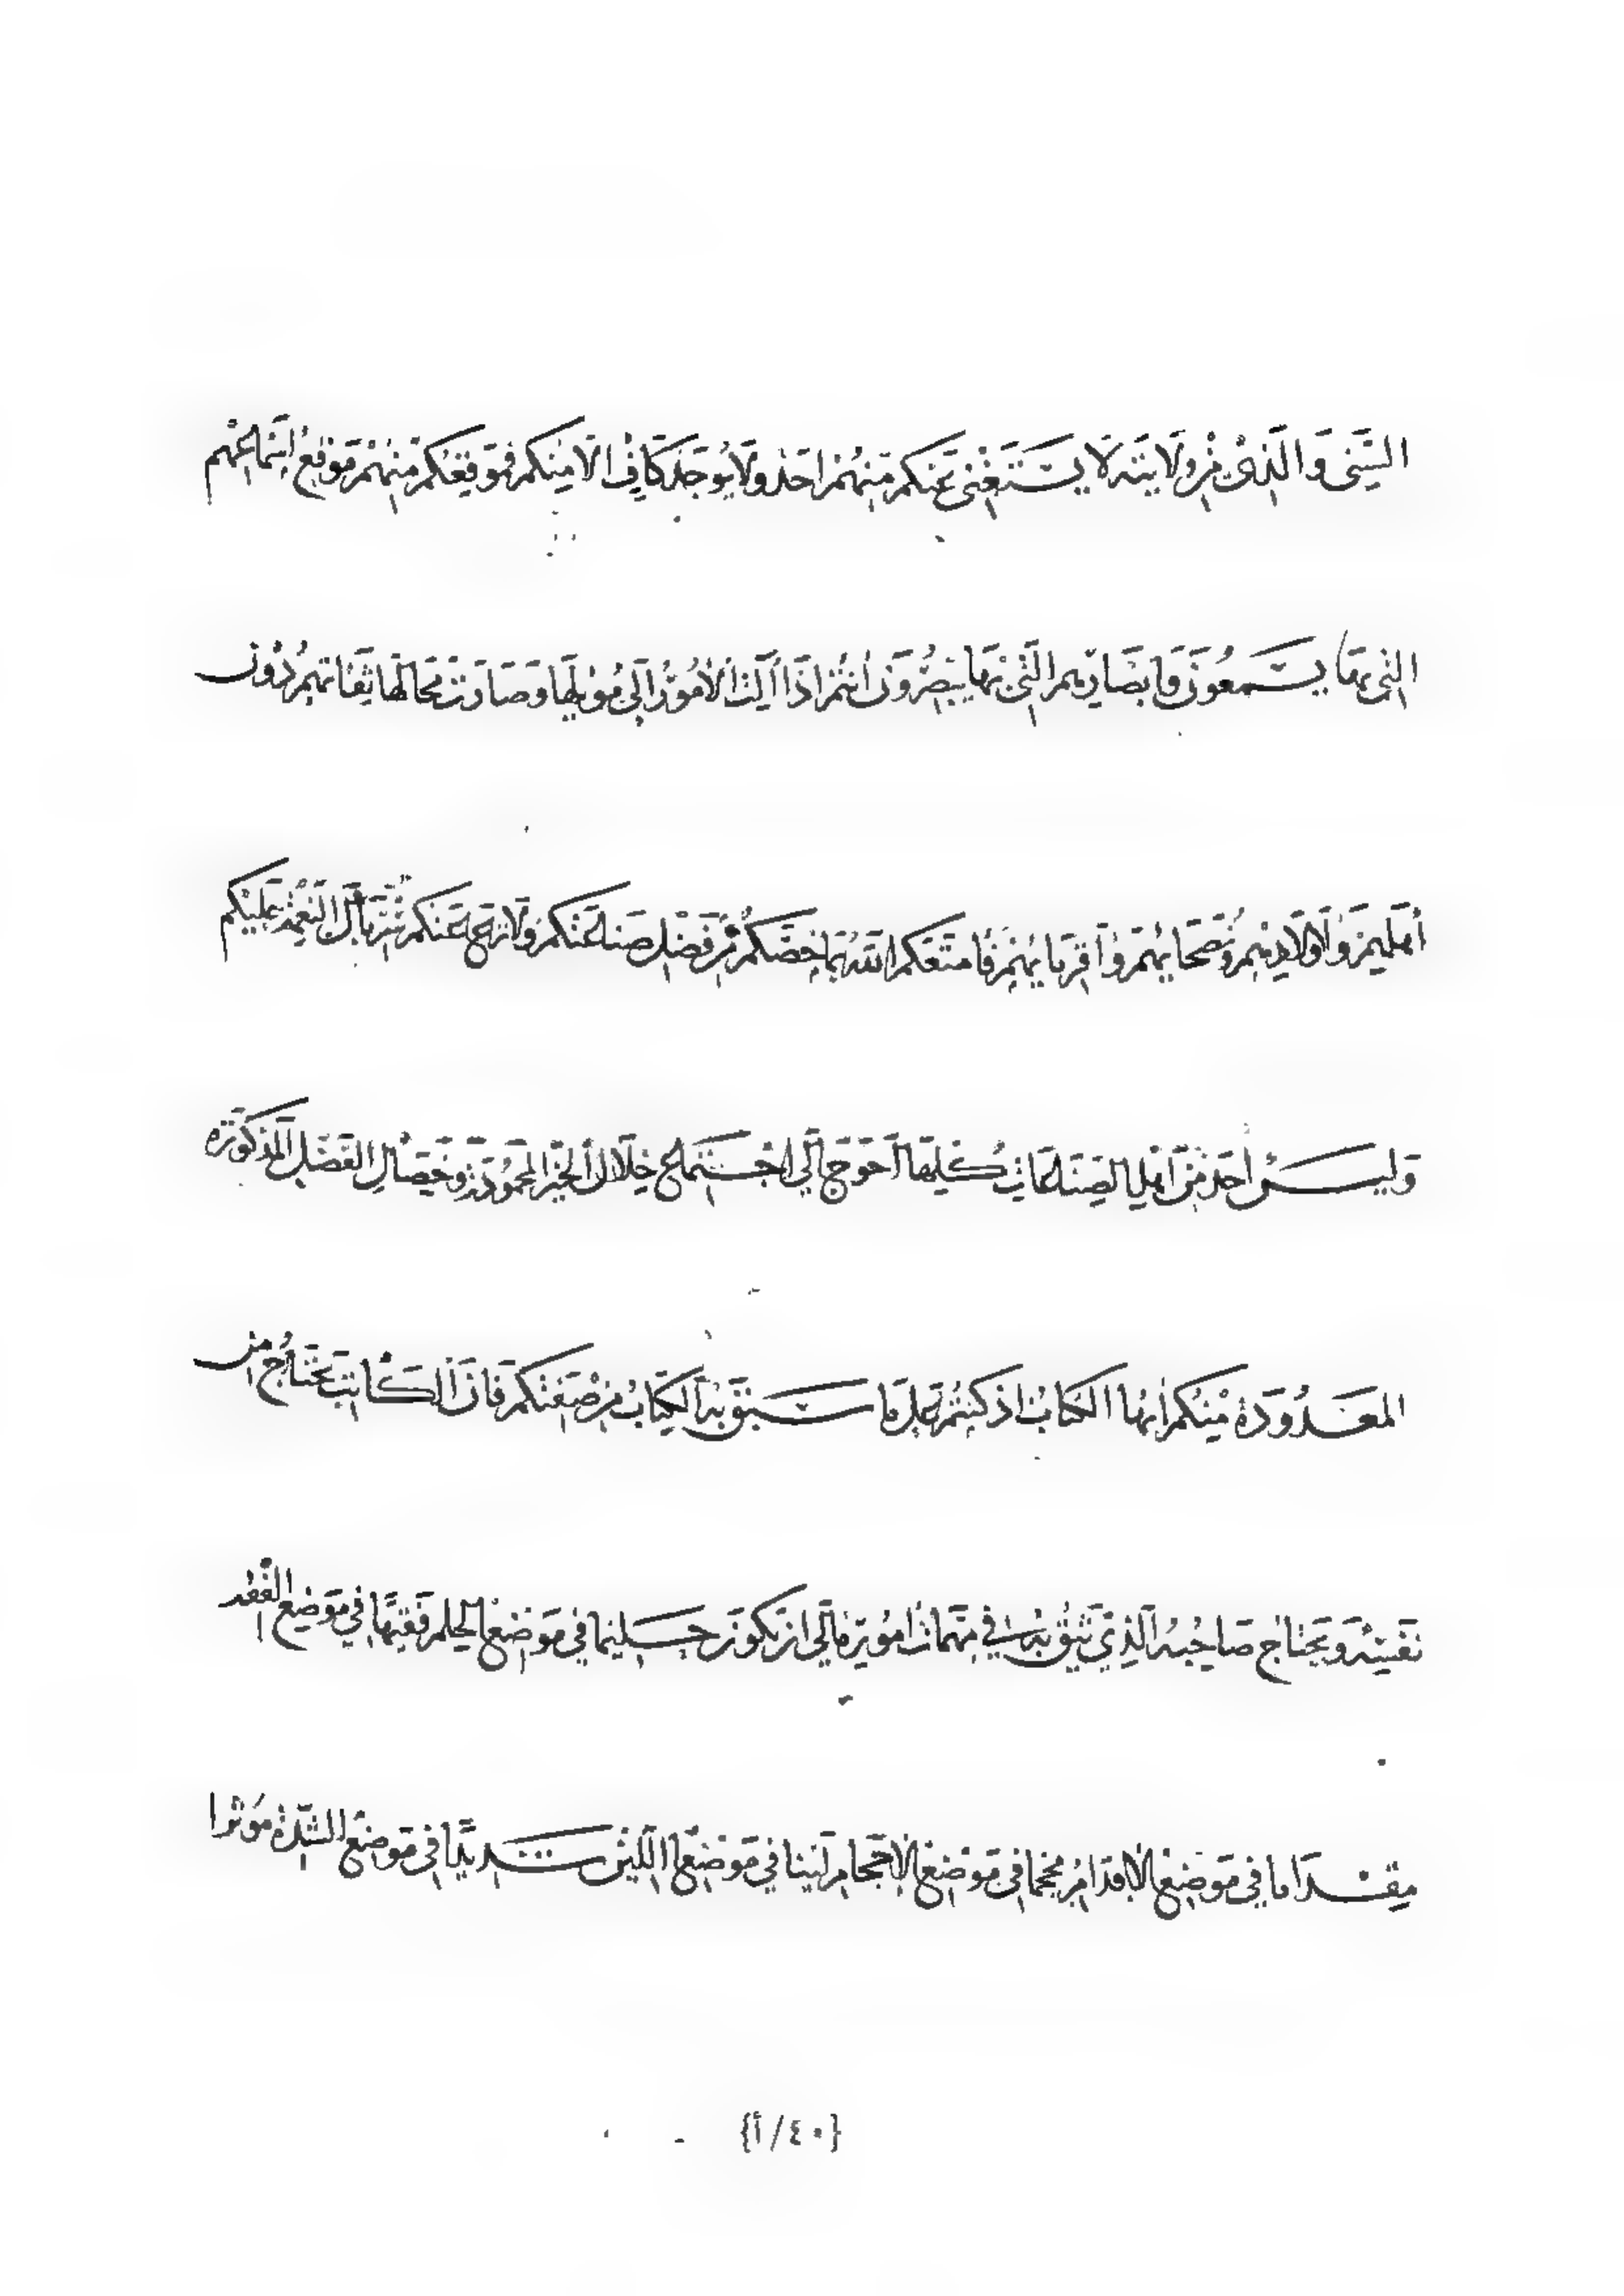 السني والذي من ولايته لا يستغني عنكم منهم احد ولا يوجد كاف الا منكم فموقعكم منهم موقع اسماعهم
التي بها يسمعون وابصارهم التي بها يبصرون انتم اذا آلت الامور الى موئلها وصارت محالها ثقاتهم دون
أهليهم واولادهم ونصحائهم واقربائهم فأمتعكم الله بما خصكم من فضل صناعتكم ولا نزع عنكم سربال النعمة عليكم
وليس أحد من أهل الصناعات كلها أحوج الى اجتماع خلال الخير المحمودة وخصال الفضل المذكورة
المعدودة منكم ايها الكتاب اذ كنتم على ما سبق به الكتاب من صفتكم فان الكاتب يحتاج من
نفسه ويحتاج صاحبه الذي يثق به في مهمات اموره الى ان يكون حليما في موضع الحلم فقيها في موضع
مقداما في موضع الاقدام محجما في موضع الاحجام لينا في موضع اللين شديدا في موضع الشدة مؤثرا
{٤٠/أ}